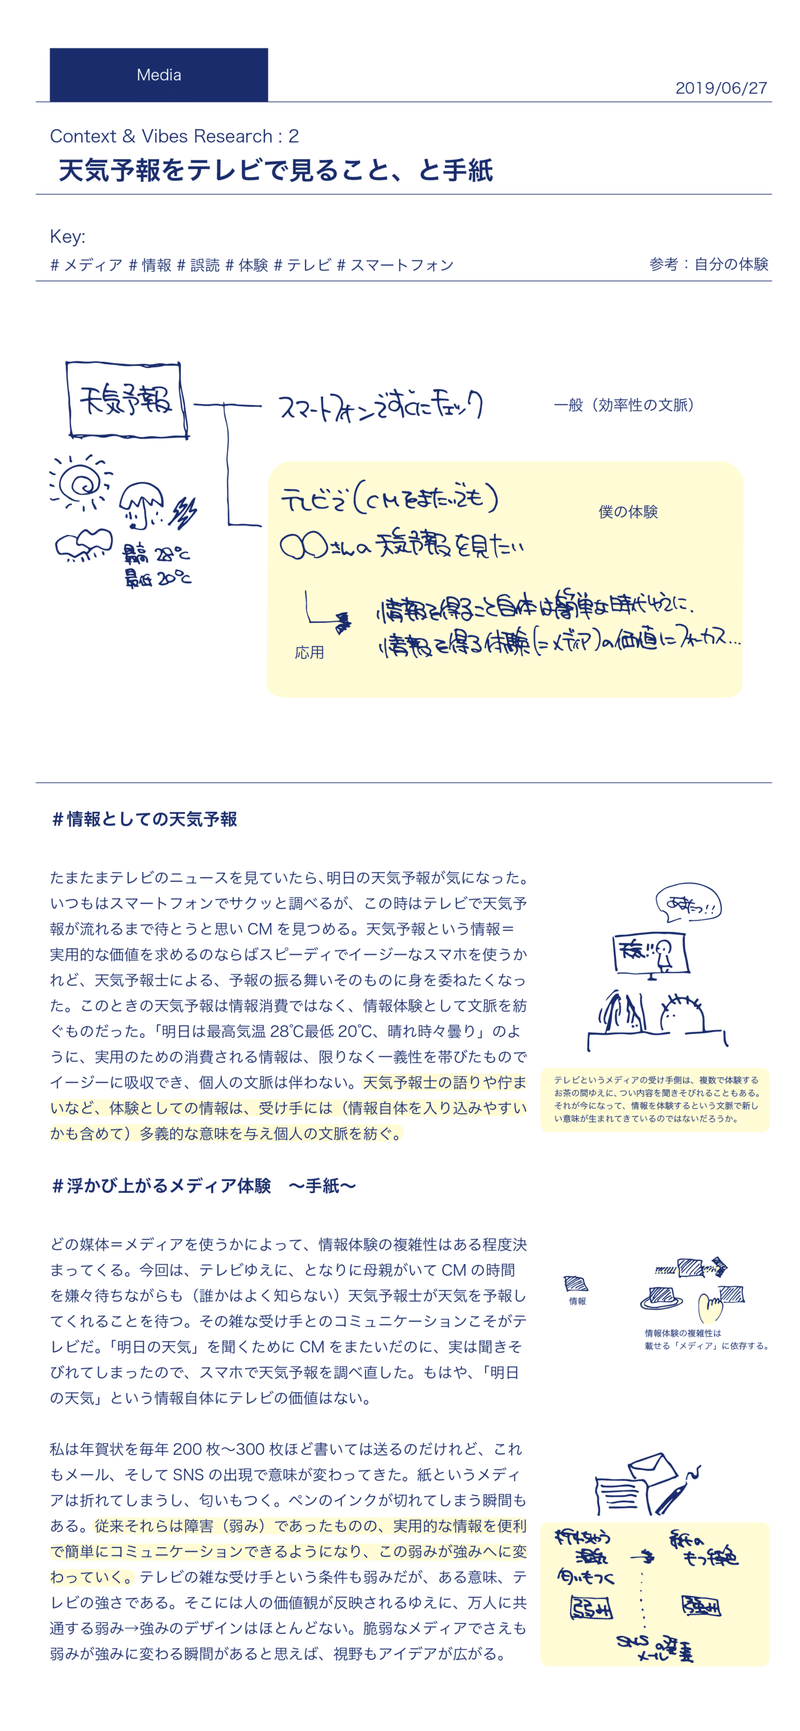 Media
2019/06/27
Context & Vibes Research : 2
天気予報をテレビで見ること、と手紙
Key:
# メディア # 情報 # 誤読 # 体験 # テレビ # スマートフォン
参考：自分の体験
天気予報
スマートフォンですぐにチェック
一般（効率性の文脈）
最高 28℃
最低 20℃
テレビで(CMをまたいでも)
僕の体験
〇〇さんの天気予報を見たい
情報を得ること自体は簡単な時代やうに、
情報を得る体験(=メディア)の価値にフォーカス...
応用
#情報としての天気予報
たまたまテレビのニュースを見ていたら、明日の天気予報が気になった。
いつもはスマートフォンでサクッと調べるが、この時はテレビで天気予
報が流れるまで待とうと思い CM を見つめる。天気予報という情報＝
実用的な価値を求めるのならばスピーディでイージーなスマホを使うか
れど、天気予報士による、予報の振る舞いそのものに身を委ねたくなっ
た。このときの天気予報は情報消費ではなく、情報体験として文脈を紡
ぐものだった。「明日は最高気温 28℃最低 20℃、晴れ時々曇り」のよ
うに、実用のための消費される情報は、限りなく一義性を帯びたもので
イージーに吸収でき、個人の文脈は伴わない。天気予報士の語りや佇ま
いなど、体験としての情報は、受け手には（情報自体を入り込みやすい
かも含めて）多義的な意味を与え個人の文脈を紡ぐ。
天気!!
テレビというメディアの受け手側は、複数で体験する
お茶の間ゆえに、つい内容を聞きそびれることもある。
それが今になって、情報を体験するという文脈で新し
い意味が生まれてきているのではないだろうか。
#浮かび上がるメディア体験　〜手紙〜
どの媒体＝メディアを使うかによって、情報体験の複雑性はある程度決
まってくる。今回は、テレビゆえに、となりに母親がいて CM の時間
を嫌々待ちながらも（誰かはよく知らない）天気予報士が天気を予報し
てくれることを待つ。その雑な受け手とのコミュニケーションこそがテ
レビだ。「明日の天気」を聞くために CM をまたいだのに、実は聞きそ
びれてしまったので、スマホで天気予報を調べ直した。もはや、「明日
の天気」という情報自体にテレビの価値はない。
情報
情報体験の複雑性は
載せる「メディア」に依存する。
私は年賀状を毎年 200 枚〜300 枚ほど書いては送るのだけれど、これ
もメール、そして SNS の出現で意味が変わってきた。紙というメディ
アは折れてしまうし、匂いもつく。ペンのインクが切れてしまう瞬間も
ある。従来それらは障害（弱み）であったものの、実用的な情報を便利
で簡単にコミュニケーションできるようになり、この弱みが強みへに変
わっていく。テレビの雑な受け手という条件も弱みだが、ある意味、テ
レビの強さである。そこには人の価値観が反映されるゆえに、万人に共
通する弱み→強みのデザインはほとんどない。脆弱なメディアでさえも
弱みが強みに変わる瞬間があると思えば、視野もアイデアが広がる。
折れちゃう
濡れる
匂いもつく
紙の
もつ特色
弱み
強み
SNS
メール
の発達